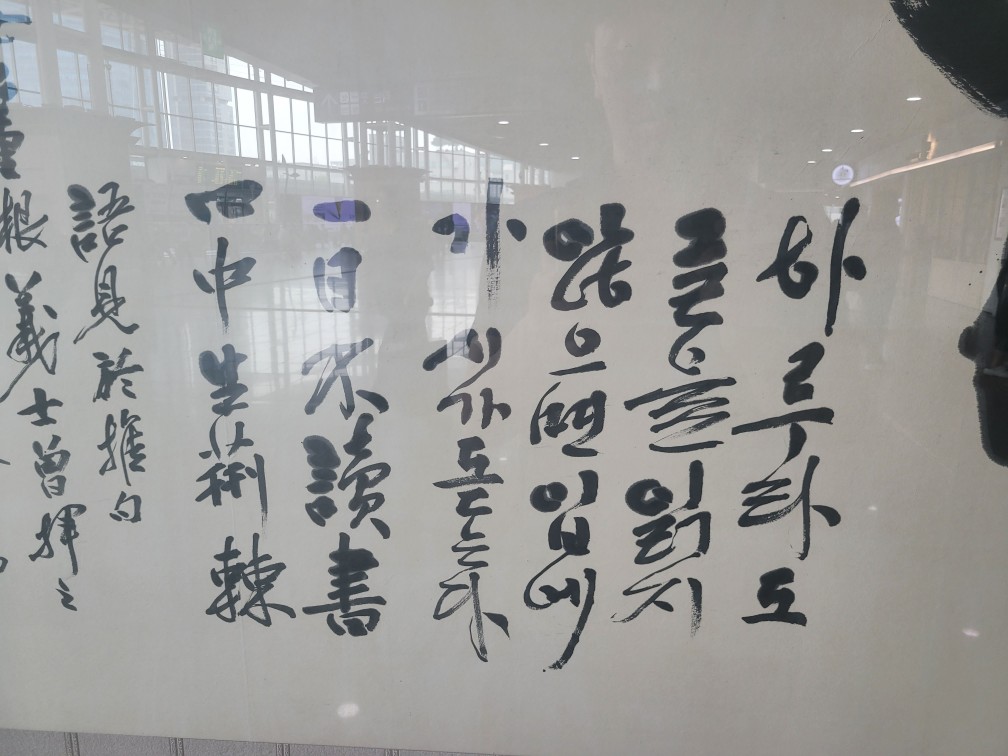 하루라도
글을 읽지
않으면 입에
가시가 돋는다
一日不讀書
口中生荊棘
語見於
重根義士曾揮之